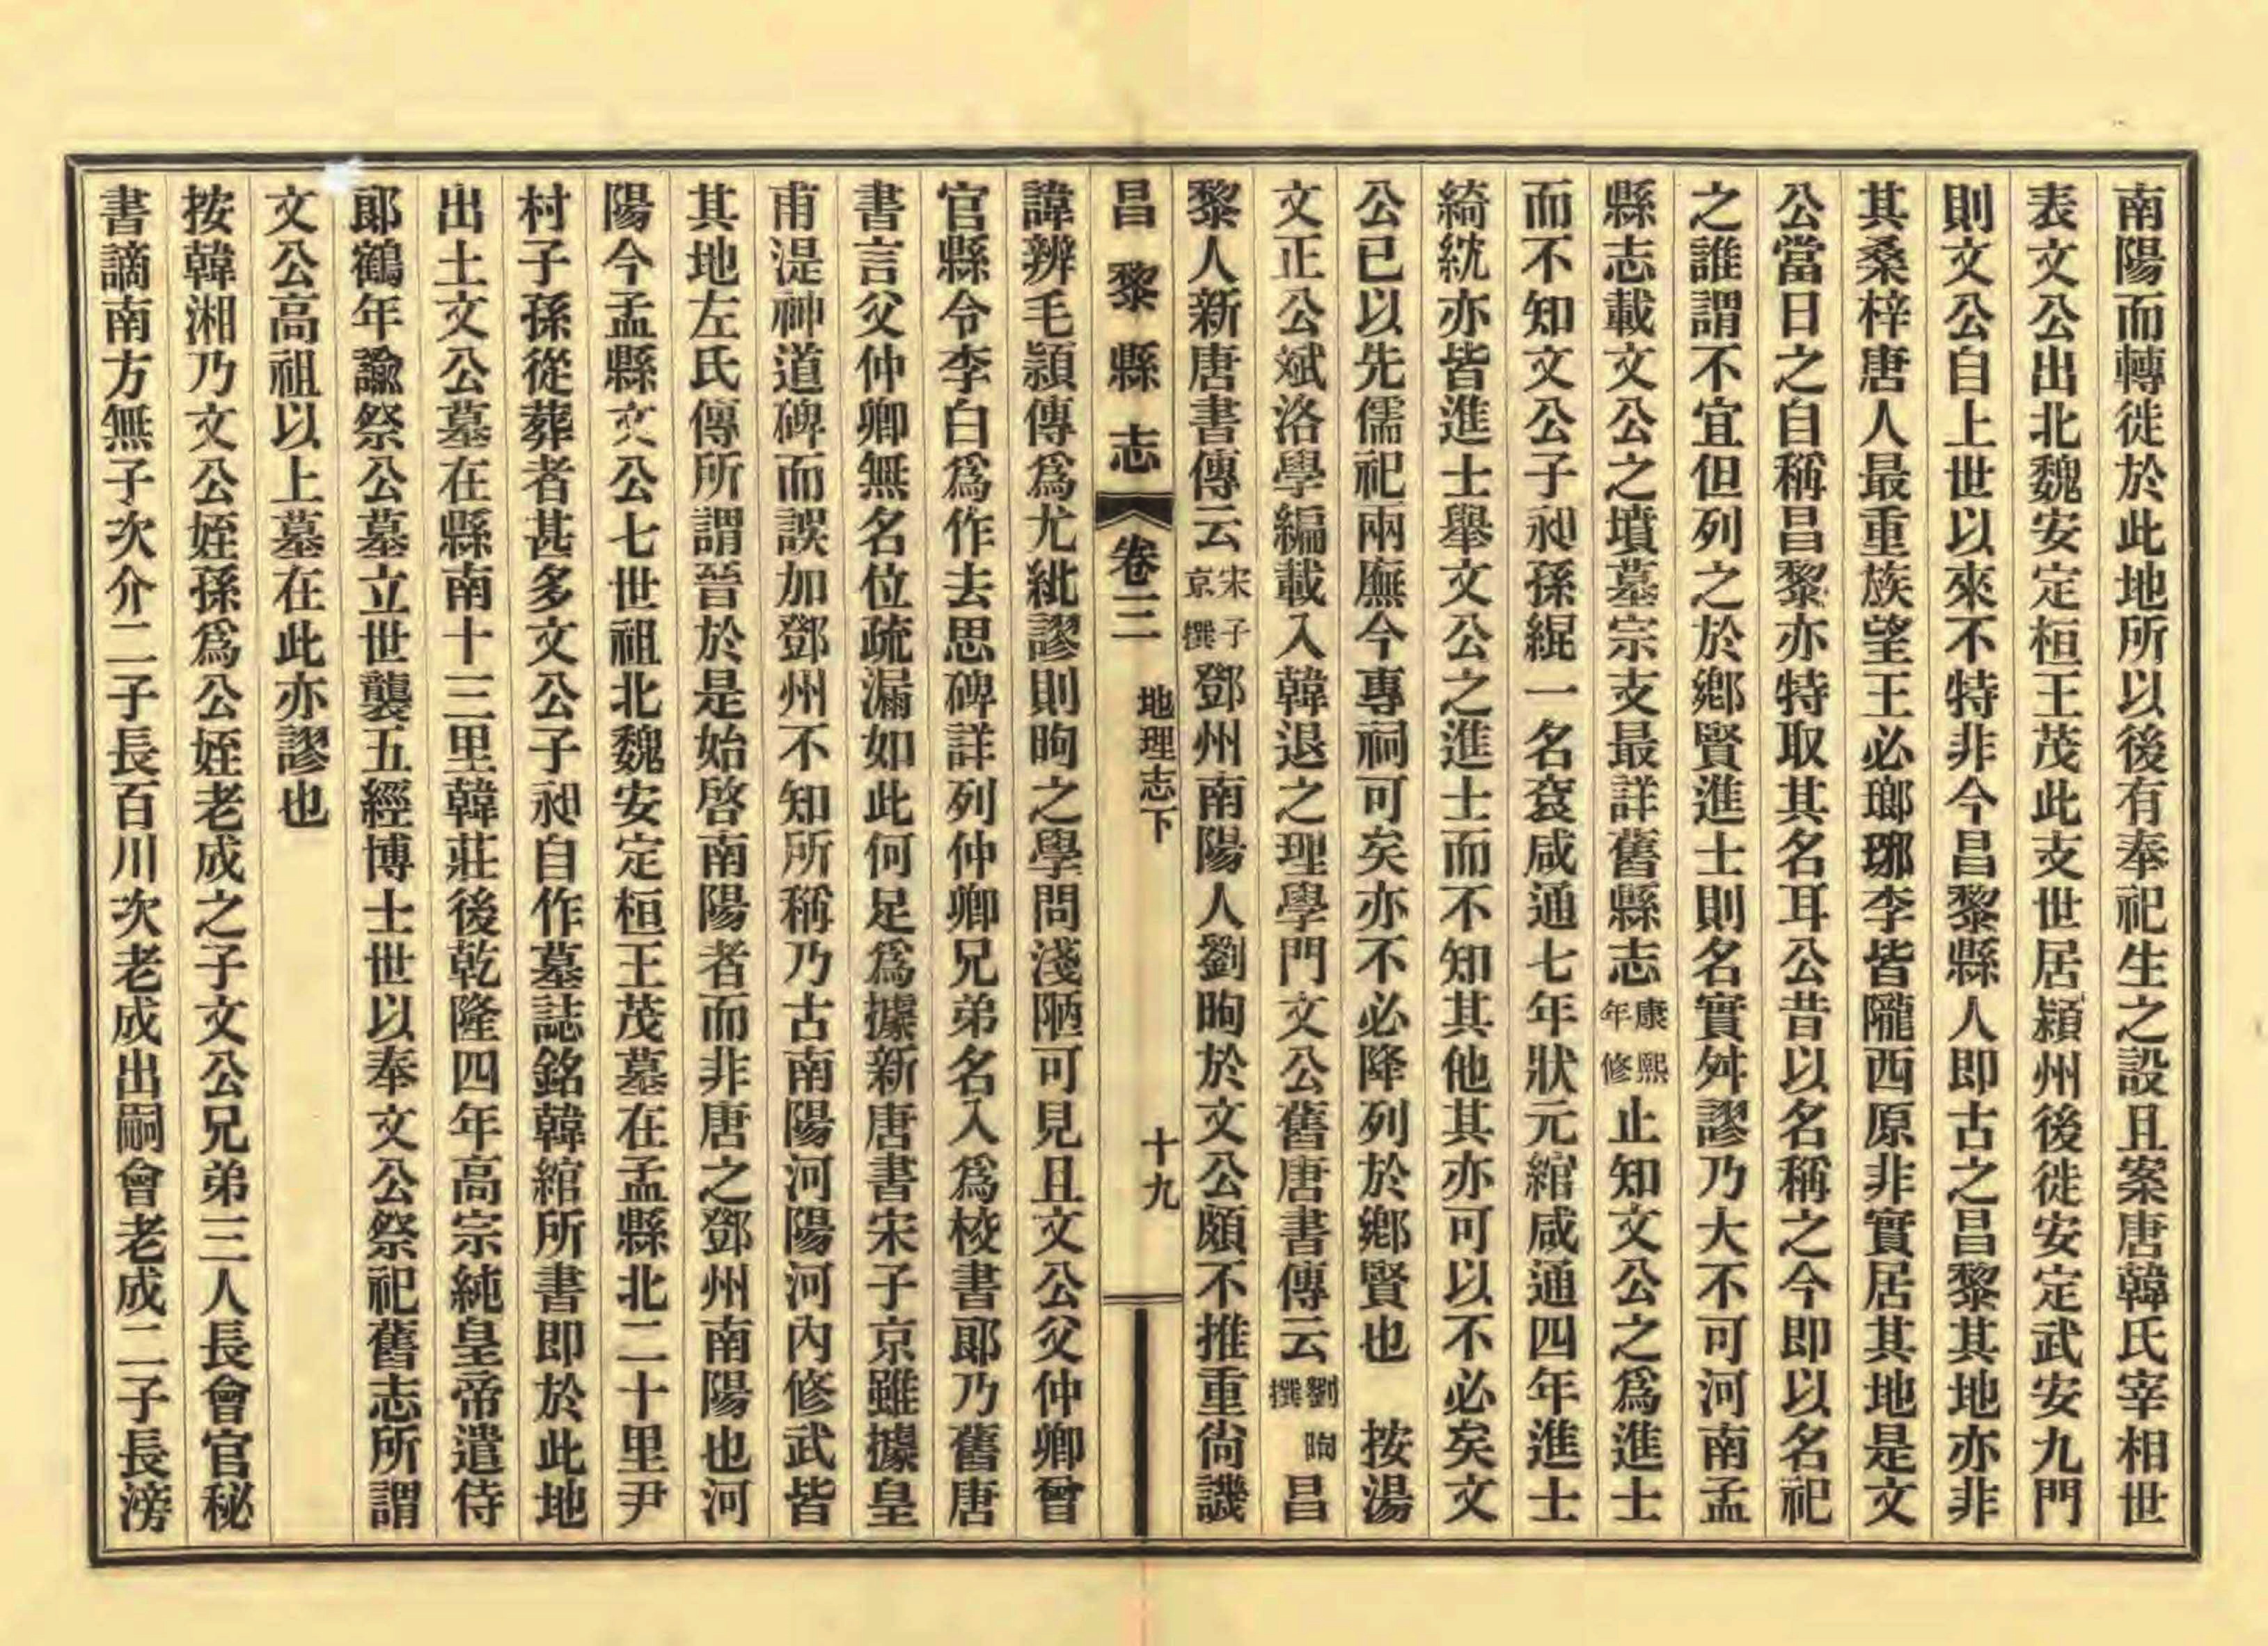 南陽而轉徙於此地所以後有奉祀生之設且案唐韓氏宰相世
表文公出北魏安定桓王茂此支世居潁州後徙安定武安九門
則文公自上世以來不特非今昌黎縣人即古之昌黎其地亦非
其桑梓唐人最重族望王必瑯琊李皆隴西原非實居其地是文
公當日之自稱昌黎亦特取其名耳公昔以名稱之今即以名祀
之誰謂不宜但列之於鄉賢進士則名實舛謬乃大不可河南孟
縣志載文公之墳墓宗支最詳舊縣志康熙年修止知文公之爲進士
而不知文公子昶孫緄一名袞咸通七年狀元綰咸通四年進士
綺紞亦皆進士舉文公之進士而不知其他其亦可以不必矣文
公已以先儒祀兩廡今專祠可矣亦不必降列於鄉賢也　按湯
文正公斌洛學編載入韓退之理學門文公舊唐書傳云劉昫撰昌
黎人新唐書傳云宋子京撰鄧州南陽人劉昫於文公頗不推重尙譏
昌黎縣志　卷三　地理志下　十九
諱辨毛穎傳爲尤紕謬則昫之學問淺陋可見且文公父仲卿曾
官縣令李白爲作去思碑詳列仲卿兄弟名入爲校書郞乃舊唐
書言父仲卿無名位疏漏如此何足爲據新唐書宋子京雖據皇
甫湜神道碑而誤加鄧州不知所稱乃古南陽河陽河內修武皆
其地左氏傳所謂晉於是始啓南陽者而非唐之鄧州南陽也河
陽今孟縣文公七世祖北魏安定桓王茂墓在孟縣北二十里尹
村子孫從葬者甚多文公子昶自作墓誌銘韓綰所書即於此地
出土文公墓在縣南十三里韓莊後乾隆四年高宗純皇帝遣侍
郞鶴年諭祭公墓立世襲五經博士世以奉文公祭祀舊志所謂
文公高祖以上墓在此亦謬也
按韓湘乃文公姪孫爲公姪老成之子文公兄弟三人長會官秘
書謫南方無子次介二子長百川次老成出嗣會老成二子長滂